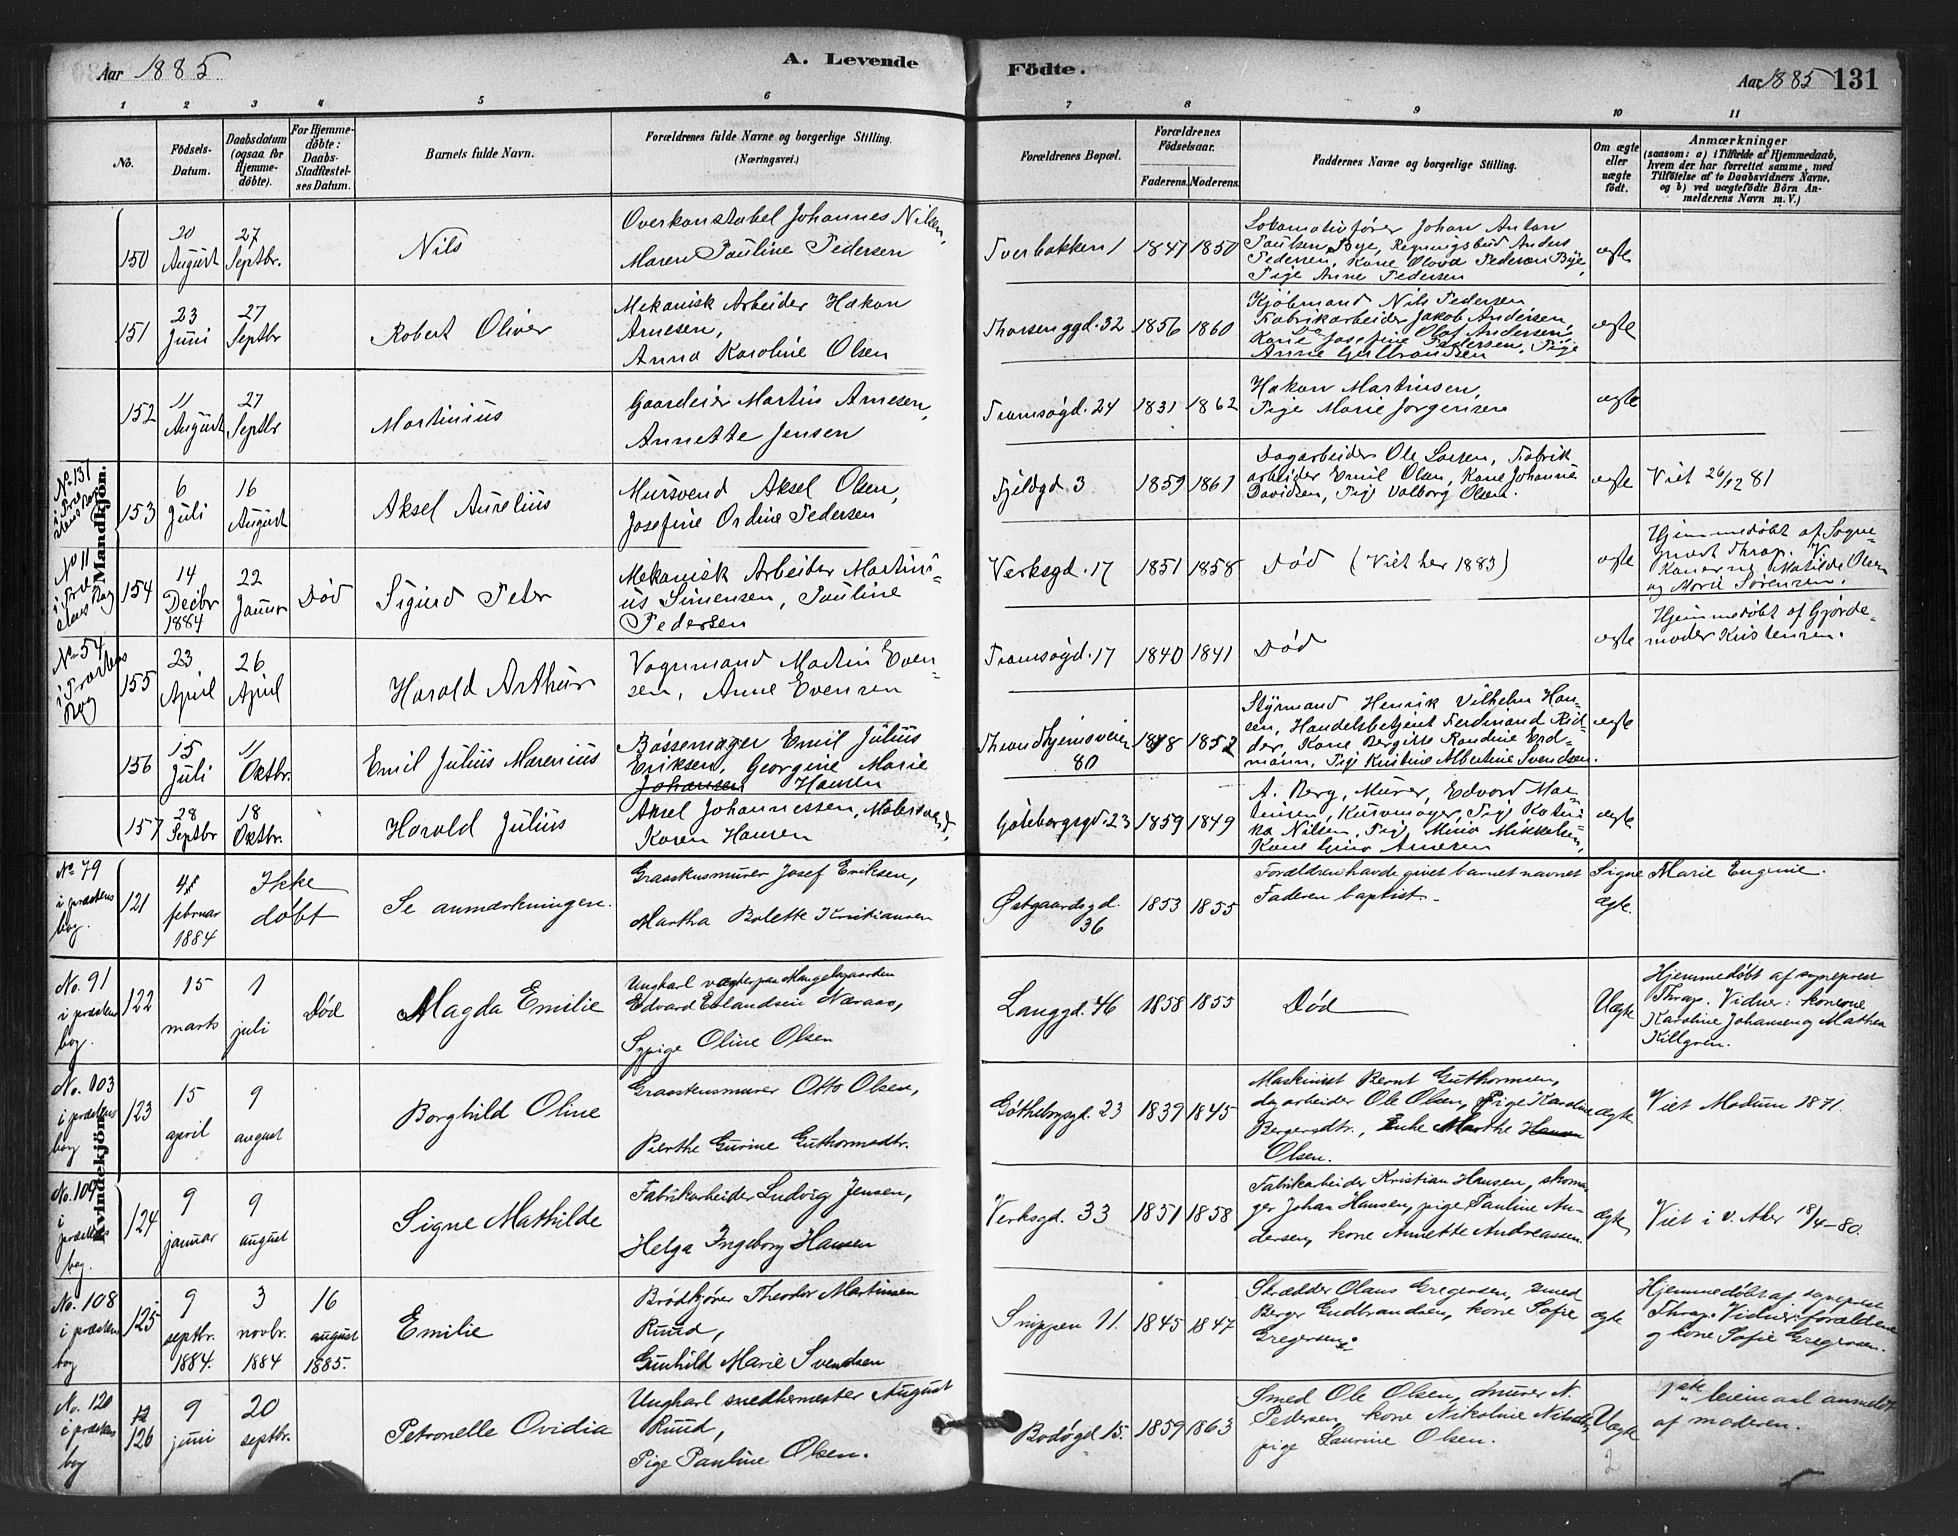 Aar 1885
A. Levende
Födte.
Aar 1885 131
1 2 3 4 5 6 7 8 9 10 11
No.
Födsels-
Datum.
Daabsdatum
(ogsaa for
Hjemme-
döbte).
For Hjemme-
döbte:
Daabs-
Stadfæstel-
ses Datum.
Barnets fulde Navn.
Forældrenes fulde Navne og borgerlige Stilling.
(Næringsvei.)
Forældrenes Bopæl.
Forældrenes
Födselsaar.
Faderens. Moderens.
Faddernes Navne og borgerlige Stilling.
Om ægte
eller
uægte
födt.
Anmærkninger
(saasom: a) i Tilfælde af Hjemmedaab,
hvem der har forrettet samme, med
Tilföielse af to Daabsvidners Navne,
og b) ved uægtefödte Börn An-
melderens Navn m. V.)
Mandkjön.
150
20
August
27
Septbr.
Nils
Overkonstabel Johannes Nilsen,
Maren Pauline Pedersen
Tverbakken 1
1847 1850
Lokomotivfører Johan Anton
Paulsen Bye, Regningsbud Anders
Pedersen, Kone Olava Pedersen Bye,
Pige Anne Pedersen
ægte
151
23
Juni
27
Septbr
Robert Oliver
Mekanisk Arbeider Hakon
Arnesen,
Anna Karoline Olsen
Thorsenggd. 32
1856 1860
Kjøbmand Nils Pedersen
Fabrikarbeider Jakob Andersen,
Do Olaf Andersen,
Kone Josefine Pedersen, Pige
Anne Gulbrandsen
ægte
152
11
August
27
Septbr
Martinius
Gaardeier Martin Arnesen,
Annette Jensen
Tromsøgd. 24
1831 1862
Hakon Martinsen,
Pige Marie Jørgensen
ægte
No 131
153
6
Juli
16
August
Aksel Aurelius
Mursvend Aksel Olsen,
Josefine Ordine Pedersen
Fjeldgd. 3
1859 1861
Dagarbeider Ole Larsen, Fabrik
arbeider Emil Olsen, Kone Johanne
Davidsen, Pige Valborg Olsen.
ægte
Viet 26/12 81
No 11
154
14
Decbr
1884
22
Januar
Død
Sigurd Peter
Mekanisk Arbeider Martini-
us Simensen, Pauline
Pedersen
Verksgd. 17
1851 1858
Død (Viet her 1883)
ægte
Hjemmedøbt af Sogne-
prest Thrap. V.
Konerne Matilde Olsen
og Marie Sørensen.
No 54
155
23
April
26
April
Harald Arthur
Vognmand Martin Even-
sen, Anne Evensen
Tromsøgd. 17
1840 1841
Død
ægte
Hjemmedøbt af Gjorde-
moder Kristensen.
156
15
Juli
11
Oktbr.
Emil Julius Marenius
Bøssemager Emil Julius
Eriksen, Georgine Marie
Johansen Hansen
Throndhjemsveien
80
1848 1852
Styrmand Henrik Vilhelm Han-
sen, Handelsbetjent Ferdinand Rid-
der, Kone Bergitte Randine Erd-
mann, Pige Kristine Albertine Svendsen.
ægte
157
28
Septbr
18
Oktbr.
Harald Julius
Aksel Johannessen, Malersvend,
Karen Hansen
Gøteborgsgd. 23
1859 1849
A. Berg, Murer, Edvard Mar-
tinsen, Kurvmager, Pige Katin-
ka Nilsen, Pige Mina Mikkelsen,
Kone Gina Arnesen
ægte
Kvindekjön.
No 79
i præstens
bog.
121
4
februar
1884
Ikke
døbt
Se anmærkningen.
Graastensmurer Josef Eriksen,
Martha Bolette Kristiansen
Østgaardsgd.
36
1853 1855
Forældrene havde givet barnet navnet Signe Marie Eugenie.
Faderen baptist.
Ægte.
No. 91
i præstens
bog.
122
15
marts
1
juli
Død
Magda Emilie
Ungkarl vægter paa Mangelsgaarden
Edvard Erlandsen Næraas,
Sypige Oline Olsen
Langgd. 46
1858 1855
Død
Uægte
Hjemmedøbt af sogneprest
Thrap. Vidner: konerne
Karoline Johansen og Mathea
Killgren.
No. 103
i præstens
bog
123
15
april
9
august
Borghild Oline
Graastensmurer Otto Olsen,
Berthe Gurine Guthormsdtr.
Gøtheborgsgd. 23
1839 1845
Maskinist Bernt Guthormsen,
dagarbeider Ole Olsen, pige Karoline
Bergersdtr., Enke Marthe Hansen
Olsen.
ægte
Viet Modum 1871.
No. 104
i
præstens
bog.
124
9
januar
9
august
Signe Mathilde
Fabrikarbeider Ludvig Jensen,
Helga Ingeborg Hansen
Verksgd. 33
1851 1858
Fabrikarbeider Kristian Hansen, skoma-
ger Johan Hansen, pige Pauline An-
dersen, kone Annette Andreassen.
ægte
Viet i V. Aker 18/4-80.
No. 108
i præstens
bog
125
9
septbr.
1884.
3
novbr.
1884
16
august
1885.
Emilie
Brødkjører Theodor Martinsen
Ruud,
Gunhild Marie Svendsen
Snippen 11.
1845 1847
Skrædder Olaus Gregersen, smed
Berger Gudbrandsen, kone Sofie
Gregersen.
ægte
Hjemmedøbt af sogneprest
Thrap. Vidner: forældrene
og kone Sofie Gregersen.
No. 120
i præstens
bog
126
9
juni
20
septbr.
Petronelle Ovidia
Ungkarl smedhemester August
Ruud,
Pige Pauline Olsen.
Bodøgd 15.
1859 1863
Smed Ole Olsen, murer N.
Pedersen, kone Nikoline
pige Laurine Olsen.
Uægte
2
1ste leiemaal anmeldt
af moderen.